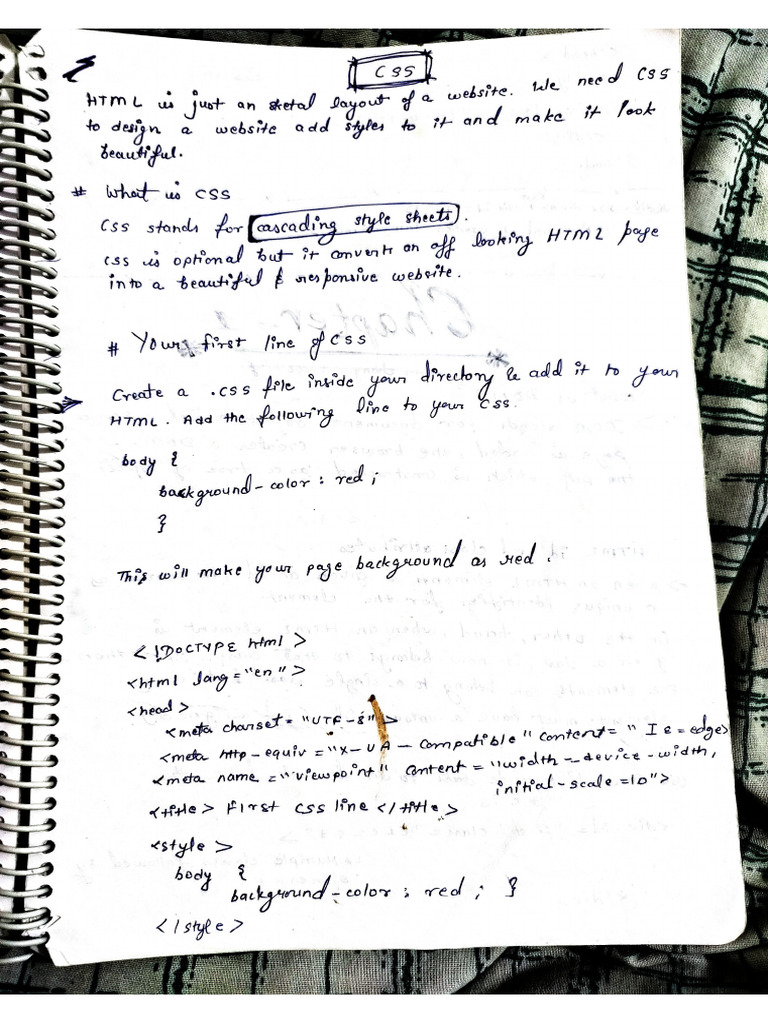 CSS
HTML is just an sketal layout of a website. We need CSS
to design a website add styles to it and make it look
beautiful.
# What is CSS
CSS stands for cascading style sheets.
CSS is optional but it converts an off looking HTML page
into a beautiful & responsive website.
# Your first line of CSS
Create a .css file inside your directory & add it to your
HTML. Add the following line to your CSS.
body {
background-color : red ;
}
This will make your page background as red.
<!DOCTYPE html>
<html lang="en">
<head>
<meta charset = "UTF-8">
<meta http-equiv = "X-UA-Compatible" content = "IE=edge>
<meta name = "viewpoint" content = "width=device-width,
initial-scale=1.0">
<title> First CSS line </title>
<style>
body {
background-color : red ; }
</style>